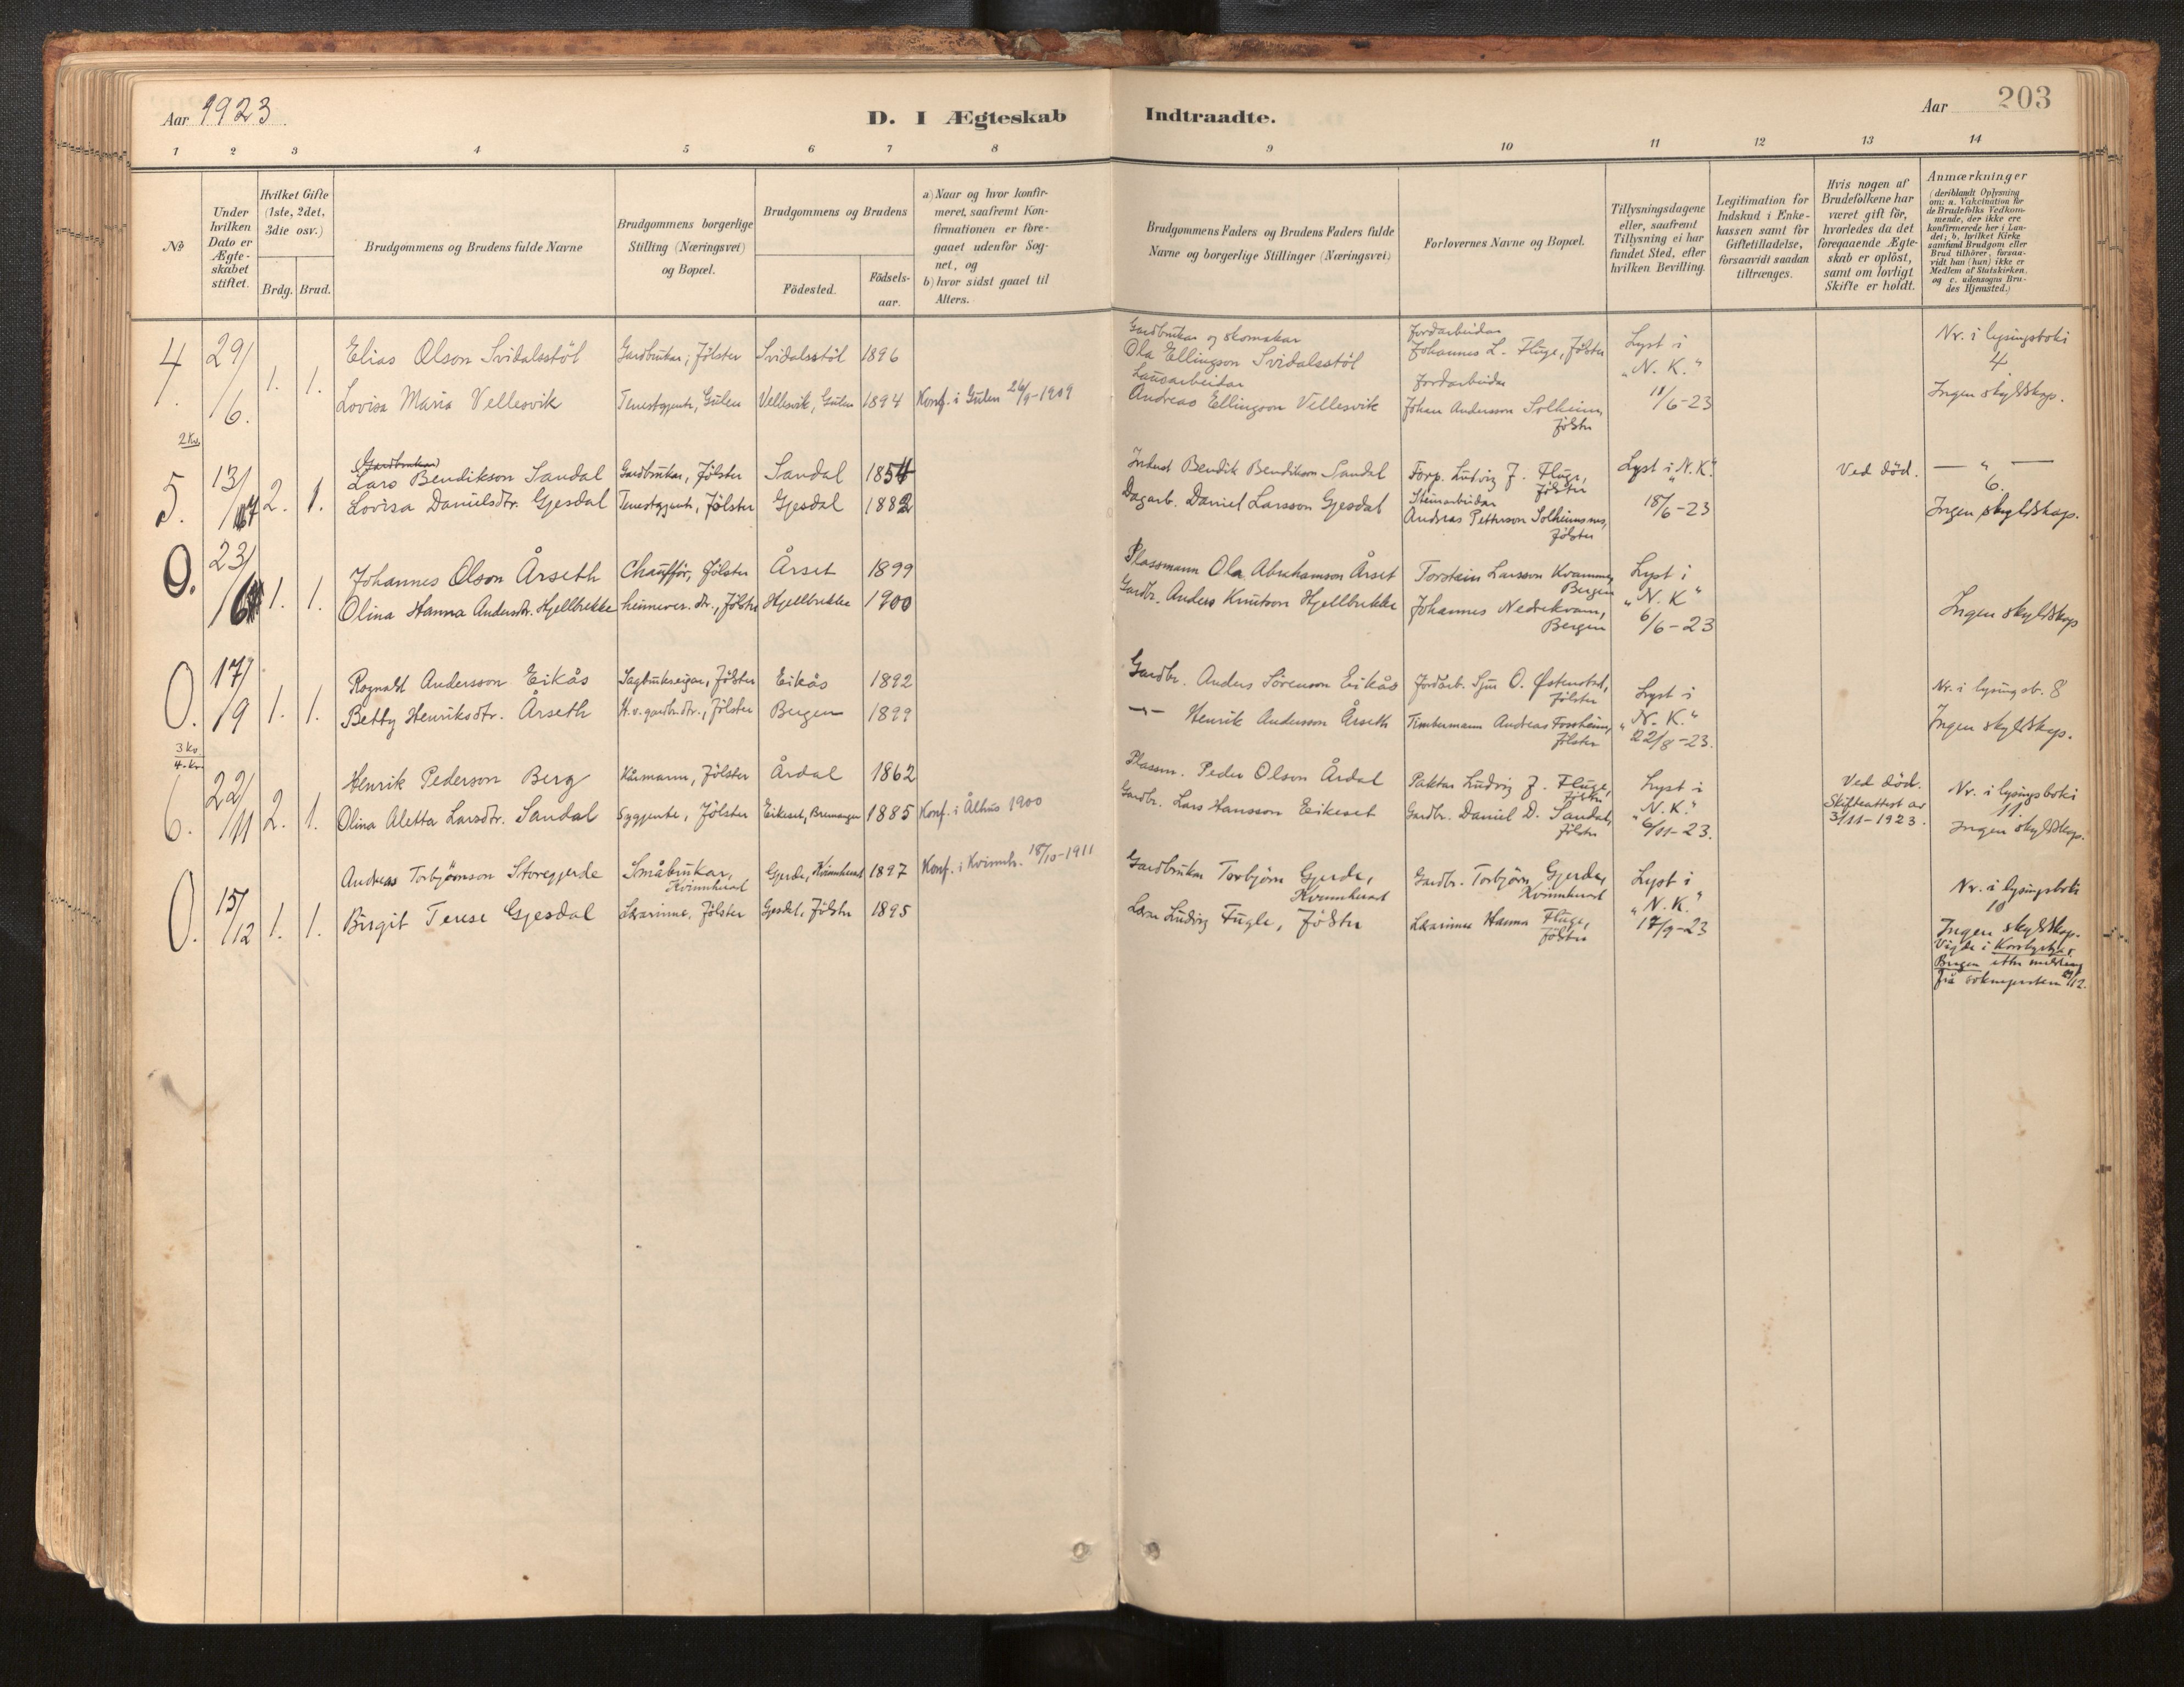 Aar 1923
D. I Ægteskab Indtraadte.
Aar 203
1 2 3 4 5 6 7 8 9 10 11 12 13 14
No
Under hvilken Dato er Ægte-skabet stiftet.
Hvilket Gifte (1ste, 2det, 3die osv.)
Brdg. Brud.
Brudgommens og Brudens fulde Navne
Brudgommens borgerlige Stilling (Næringsvei) og Bopæl.
Brudgommens og Brudens
Födested. Födsels-aar.
a) Naar og hvor konfir-meret, saafremt Kon-firmationen er fore-gaaet udenfor Sog-net, og
b) hvor sidst gaaet til Alters.
Brudgommens Faders og Brudens Faders fulde Navne og borgerlige Stillinger (Næringsvei)
Forlovernes Navne og Bopæl.
Tillysningsdagene eller, saafremt Tillysning ei har fundet Sted, efter hvilken Bevilling.
Legitimation for Indskud i Enke-kassen samt for Giftetilladelse, forsaavidt saadan tiltrænges.
Hvis nogen af Brudefolkene har været gift för, hvorledes da det foregaaende Ægte-skab er oplöst, samt om lovligt Skifte er holdt.
Anmærkninger (deriblandt Oplysning om: a. Vakcination for de Brudefolks Vedkom-mende, der ikke ere konfirmerede her i Lan-det; b. hvilket Kirke samfund Brudgom eller Brud tilhörer, forsaa-vidt han (hun) ikke er Medlem af Statskirken, og c. udensogns Bru-des Hjemsted.)
4. 29/6. 1. 1.
Elias Olson Svidalsstöl Gardbrukar, Jölster Svidalsstöl 1896
Gardbrukar og skomakar Ola Ellingson Svidalsstöl
Jordarbeidar Johannes L. Fluge, Jölster
Lyst i "N. K." 11/6-23
Nr. i lysingsboki 4
Lovisa Maria Vellesvik Tenestgjente, Gulen Vellesvik, Gulen 1894 Konf. i Gulen 26/9-1909
Lausarbeidar Andreas Ellingson Vellesvik
Jordarbeidar Johan Andersson Solheim, Jölster
Ingen skyldskap.
2 kv.
5. 13/7 2. 1.
Gardbrukar
Lars Bendikson Sandal Gardbrukar, Jölster Sandal 1854
Bendik Bendikson Sandal
Forp. Ludvig J. Fluge, Jölster
Lyst i "N. K." 18/6-23
Ved död.
— " — 6.
Lovisa Danielsdtr. Gjesdal Tenestgjente, Jölster Gjesdal 1882
Dagarb. Daniel Larsson Gjesdal
Steinarbeidar Andreas Petterson Solheimsnes, Jölster
Ingen skyldskap.
0. 23/6 1. 1.
Johannes Olson Årseth Chaufför, Jölster Årset 1899
Plassmann Ola Abrahamson Årset
Torstein Larsson Kvamme, Bergen
Lyst i "N. K" 6/6-23
Olina Hanna Andersdtr. Hjellbrekke heimever. dtr., Jölster Hjellbrekke 1900
Gardbr. Anders Knutson Hjellbrekke
Johannes Nedrekvam, Bergen
Ingen skyldskap
0. 17/9 1. 1.
Rognald Andersson Eikås Sagbrukseigar, Jölster Eikås 1892
Gardbr. Anders Sörenson Eikås
Jordarb. Sjur O. Østenstad, Jölster
Lyst i "N. K." 22/8-23.
Nr. i lysingsb. 8
Betty Henriksdtr. Årseth H.v. gardbr.dtr., Jölster Bergen 1899
—"— Henrik Andersson Årseth
Timbermann Andreas Fossheim, Jölster
Ingen skyldskap.
3 kv.
4. kv.
6. 22/11 2. 1.
Henrik Pederson Berg Kårmann, Jölster Årdal 1862
Plassm. Peder Olson Årdal
Paktar Ludvig J. Fluge, Jölster
Lyst i "N. K." 6/11-23.
Ved död. Skifteattest av 3/11-1923.
Nr. i lysingsboki 11.
Olina Aletta Larsdtr. Sandal Sygjente, Jölster Eikeset, Bremanger 1885 Konf. i Ålhus 1900
Gardbr. Lars Hansson Eikeset
Gardbr. Daniel D. Sandal, Jölster
Ingen skyldskap.
0. 15/12 1. 1.
Andreas Torbjörnson Storegjerde Småbrukar, Kvinnherad Gjerde, Kvinnherad 1897 Konf. i Kvinnh. 18/10-1911
Gardbrukar Torbjörn Gjerde, Kvinnherad
Gardbr. Torbjörn Gjerde, Kvinnherad
Lyst i "N. K." 17/9-23
Nr. i lysingsboki 10
Birgit Terese Gjesdal Lærarinne, Jölster Gjesdal, Jölster 1895
Ludvig Fugle, Jölster
Lærarinne Hanna Fluge, Jölster
Ingen skyldskap.
Vigde i Korskyrkja, Bergen etter melding frå soknepresten /12.